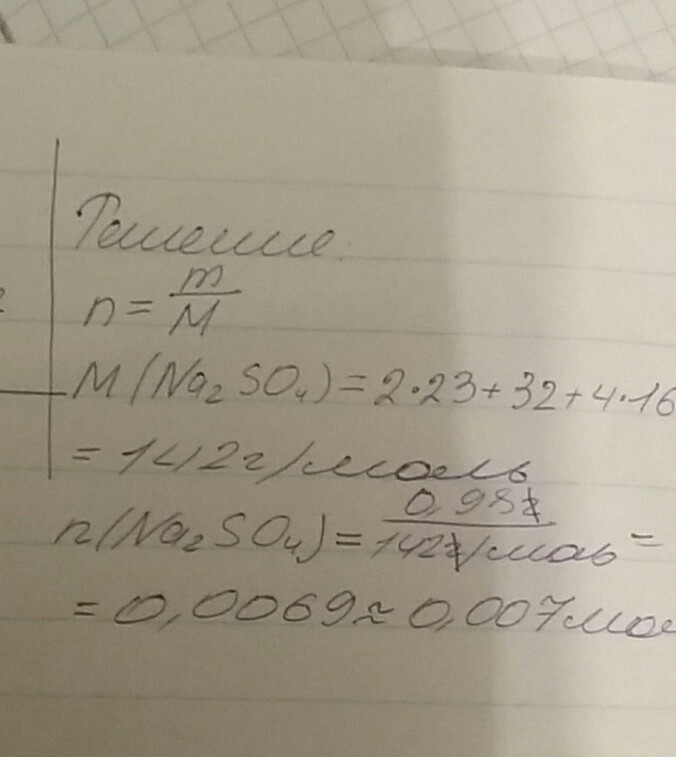 Решение:
n = m/M
M(Na₂SO₄) = 2·23 + 32 + 4·16
= 142 г/моль
n(Na₂SO₄) = 0,98г/142г/моль =
= 0,0069 ≈ 0,007 мо